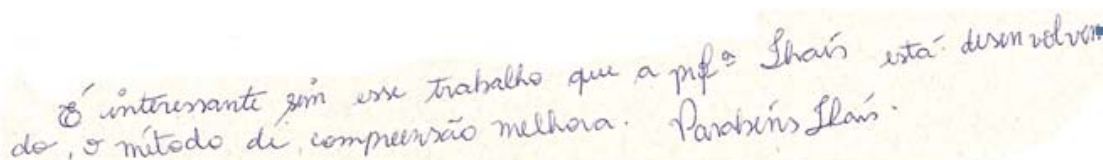 É interessante sim esse trabalho que a profª Thaís está desenvolven
do, o método de compreensão melhora. Parabéns Thaís.